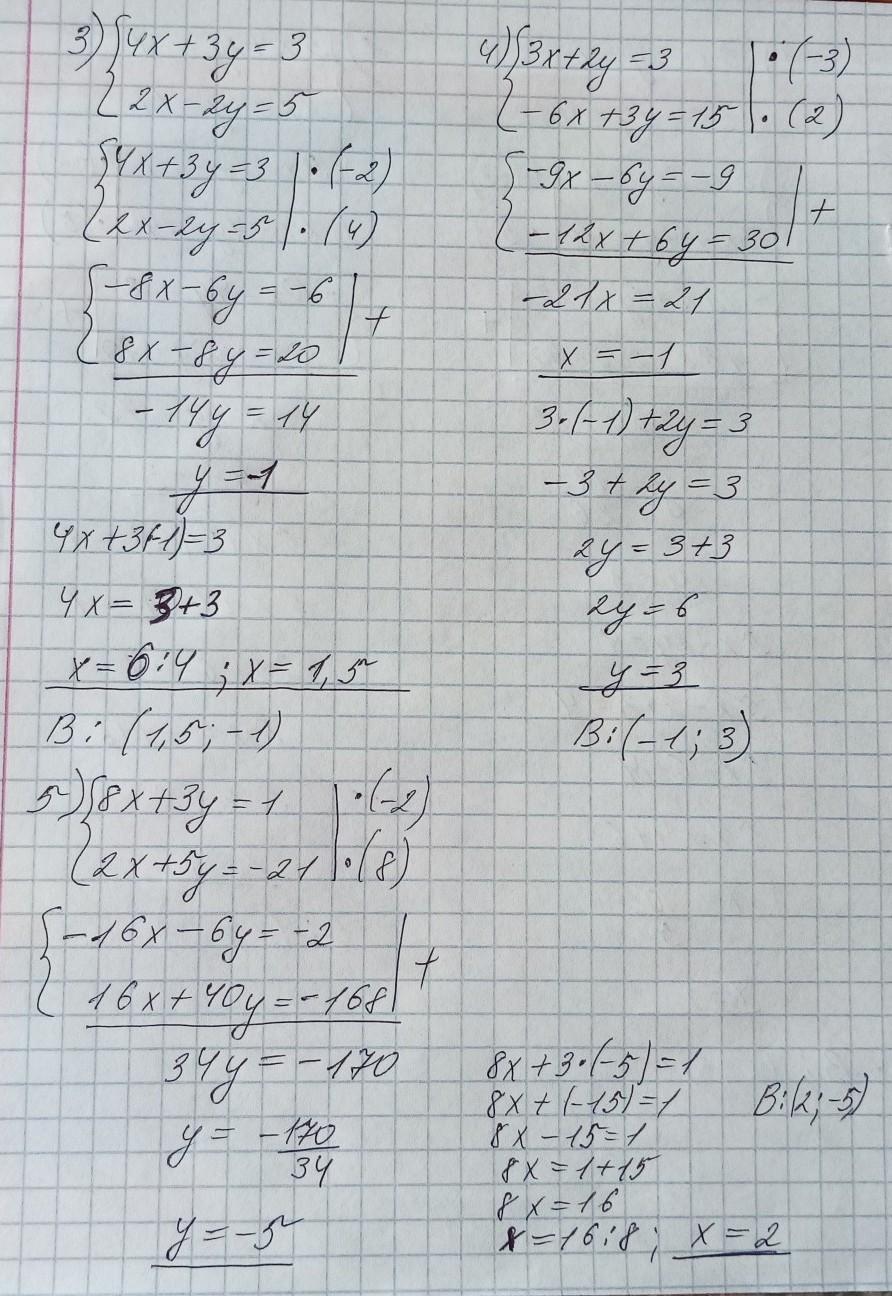 3) {4x+3y=3
2x-2y=5
{4x+3y=3 | ·(-2)
2x-2y=5 | ·(4)
{-8x-6y=-6
8x-8y=20 | +
-14y=14
y=-1
4x+3(-1)=3
4x=3+3
x=6:4 ; x=1,5
В: (1,5; -1)
4) {3x+2y=3 | ·(-3)
-6x+3y=15 | ·(2)
{-9x-6y=-9
-12x+6y=30 | +
-21x=21
x=-1
3·(-1)+2y=3
-3+2y=3
2y=3+3
2y=6
y=3
В:(-1; 3)
5) {8x+3y=1 | ·(-2)
2x+5y=-21 | ·(8)
{-16x-6y=-2
16x+40y=-168 | +
34y=-170
y= -170/34
y=-5
8x+3·(-5)=1
8x+(-15)=1
8x-15=1
8x=1+15
8x=16
x=16:8; x=2
В:(2;-5)